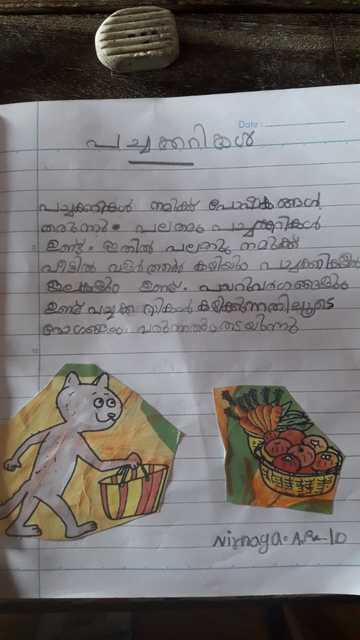 Date :
പച്ചക്കറികൾ
പച്ചക്കറികൾ നമുക്ക് പോഷകങ്ങൾ
തരുന്നു. പലതരം പച്ചക്കറികൾ
ഉണ്ട്. ഇതിൽ പലതും നമുക്ക്
വീട്ടിൽ വളർത്താൻ കഴിയും പച്ചക്കറികളിൽ
ഇലകളും ഉണ്ട്. പയറിവർഗങ്ങളും
ഉണ്ട് പച്ചക്കറികൾ കഴിക്കുന്നതിലൂടെ
രോഗങ്ങൾ വരുന്നത് തടയുന്നു
Nirmaga